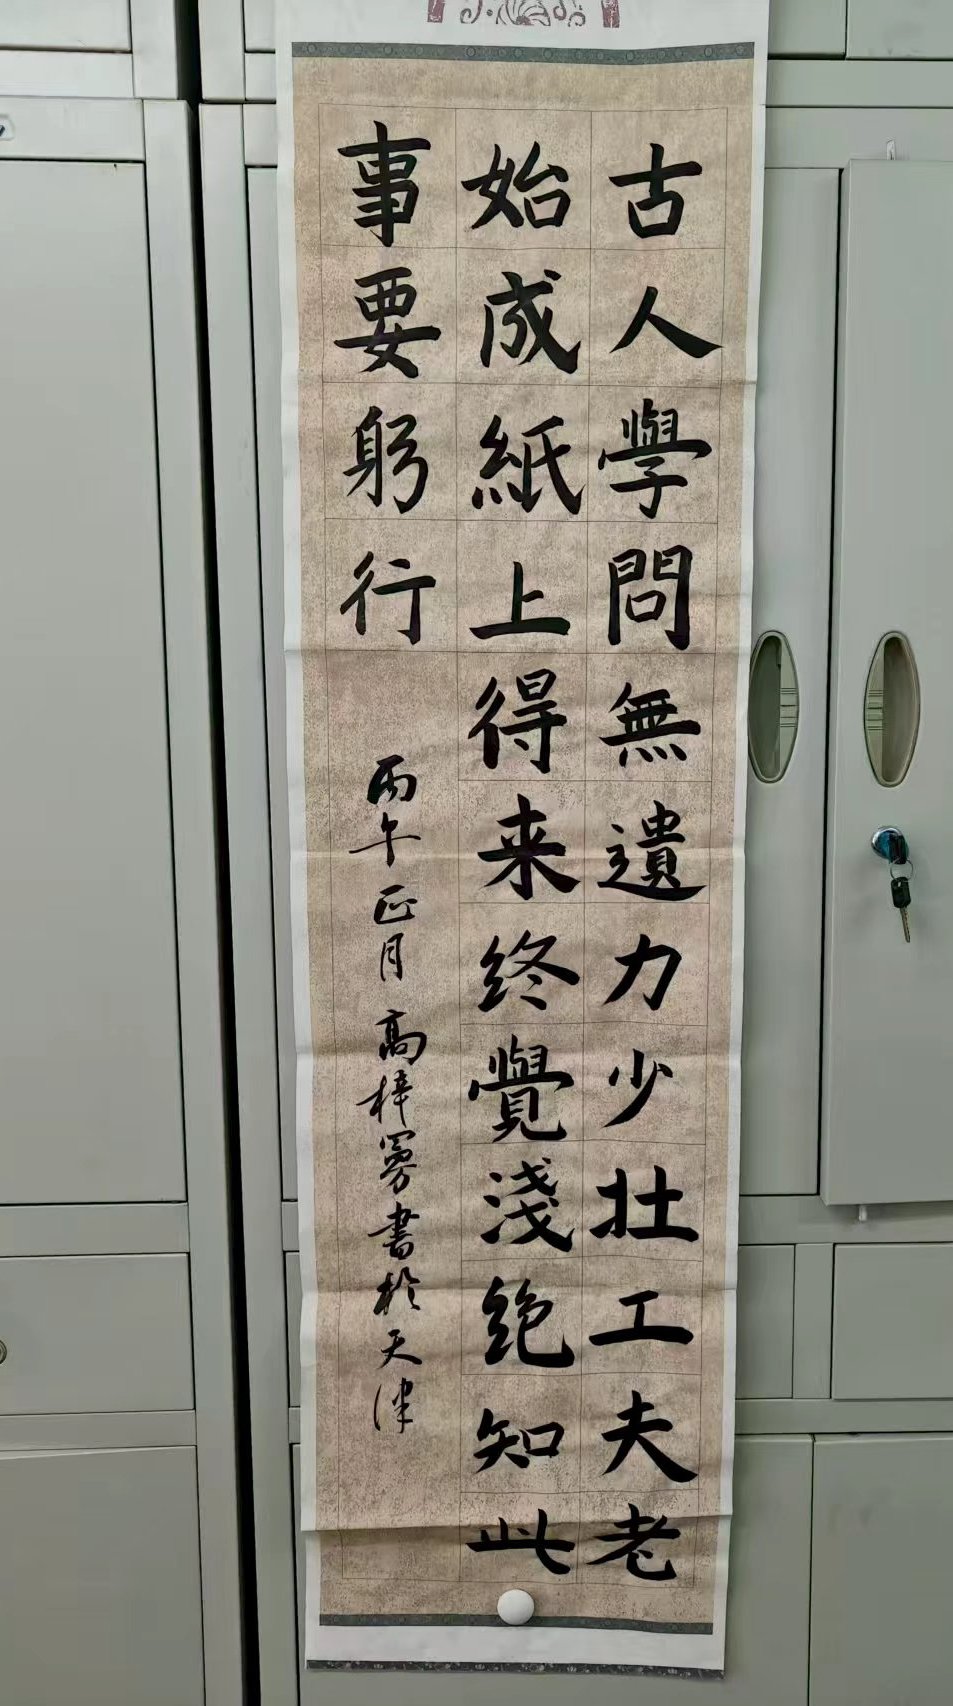 古人學問無遺力少壮工夫老
始成紙上得来终覺淺絕知此
事要躬行
丙午正月高梓罗書於天津